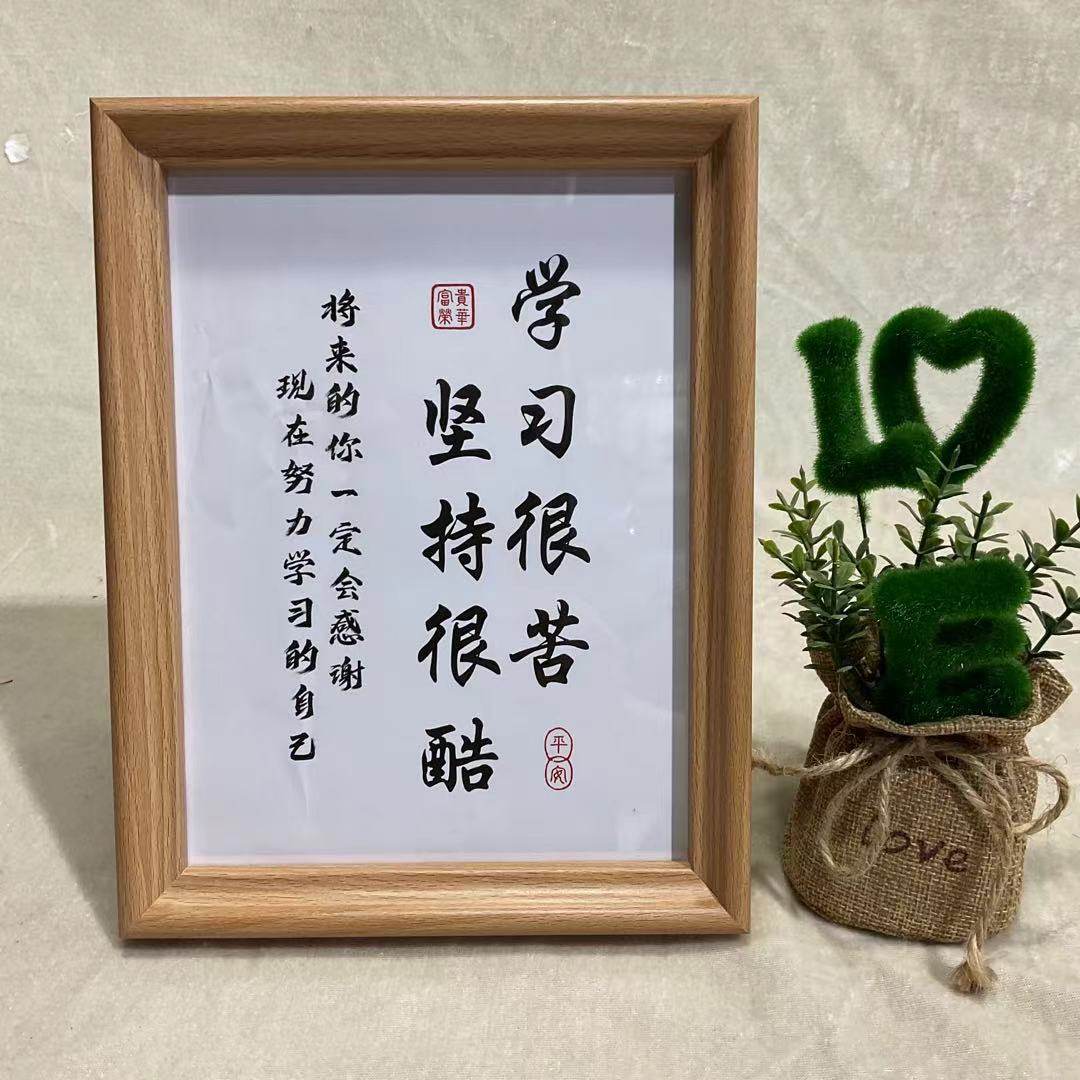 学习很苦
平安
富貴榮華
坚持很酷
将来的你一定会感谢
现在努力学习的自己
L
E
love